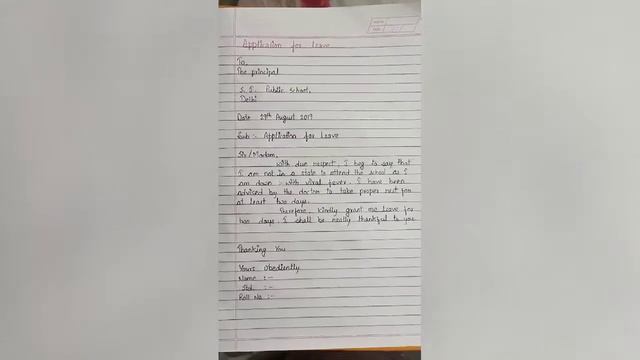 Application for Leave
To,
The principal
S. S. Public School,
Delhi
Date 29th August 2019
Sub :- Application for Leave
Sir/Madam,
With due respect, I beg is say that
I am not in a state to attend the school as I
am down :- with viral fever. I have been
advised by the doctor to take proper rest for
at least two days.
Therefore, kindly grant me leave for
two days. I shall be really thankful to you
Thanking You
Yours Obediently
Name :-
Std. :-
Roll No :-